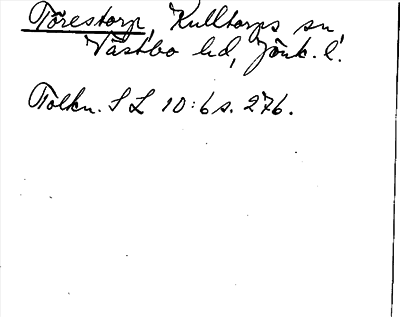 Törestorp, Kulltorps sn,
Västbo hd, Jönk. l.
Tolkn. S L 10:6 s. 276.